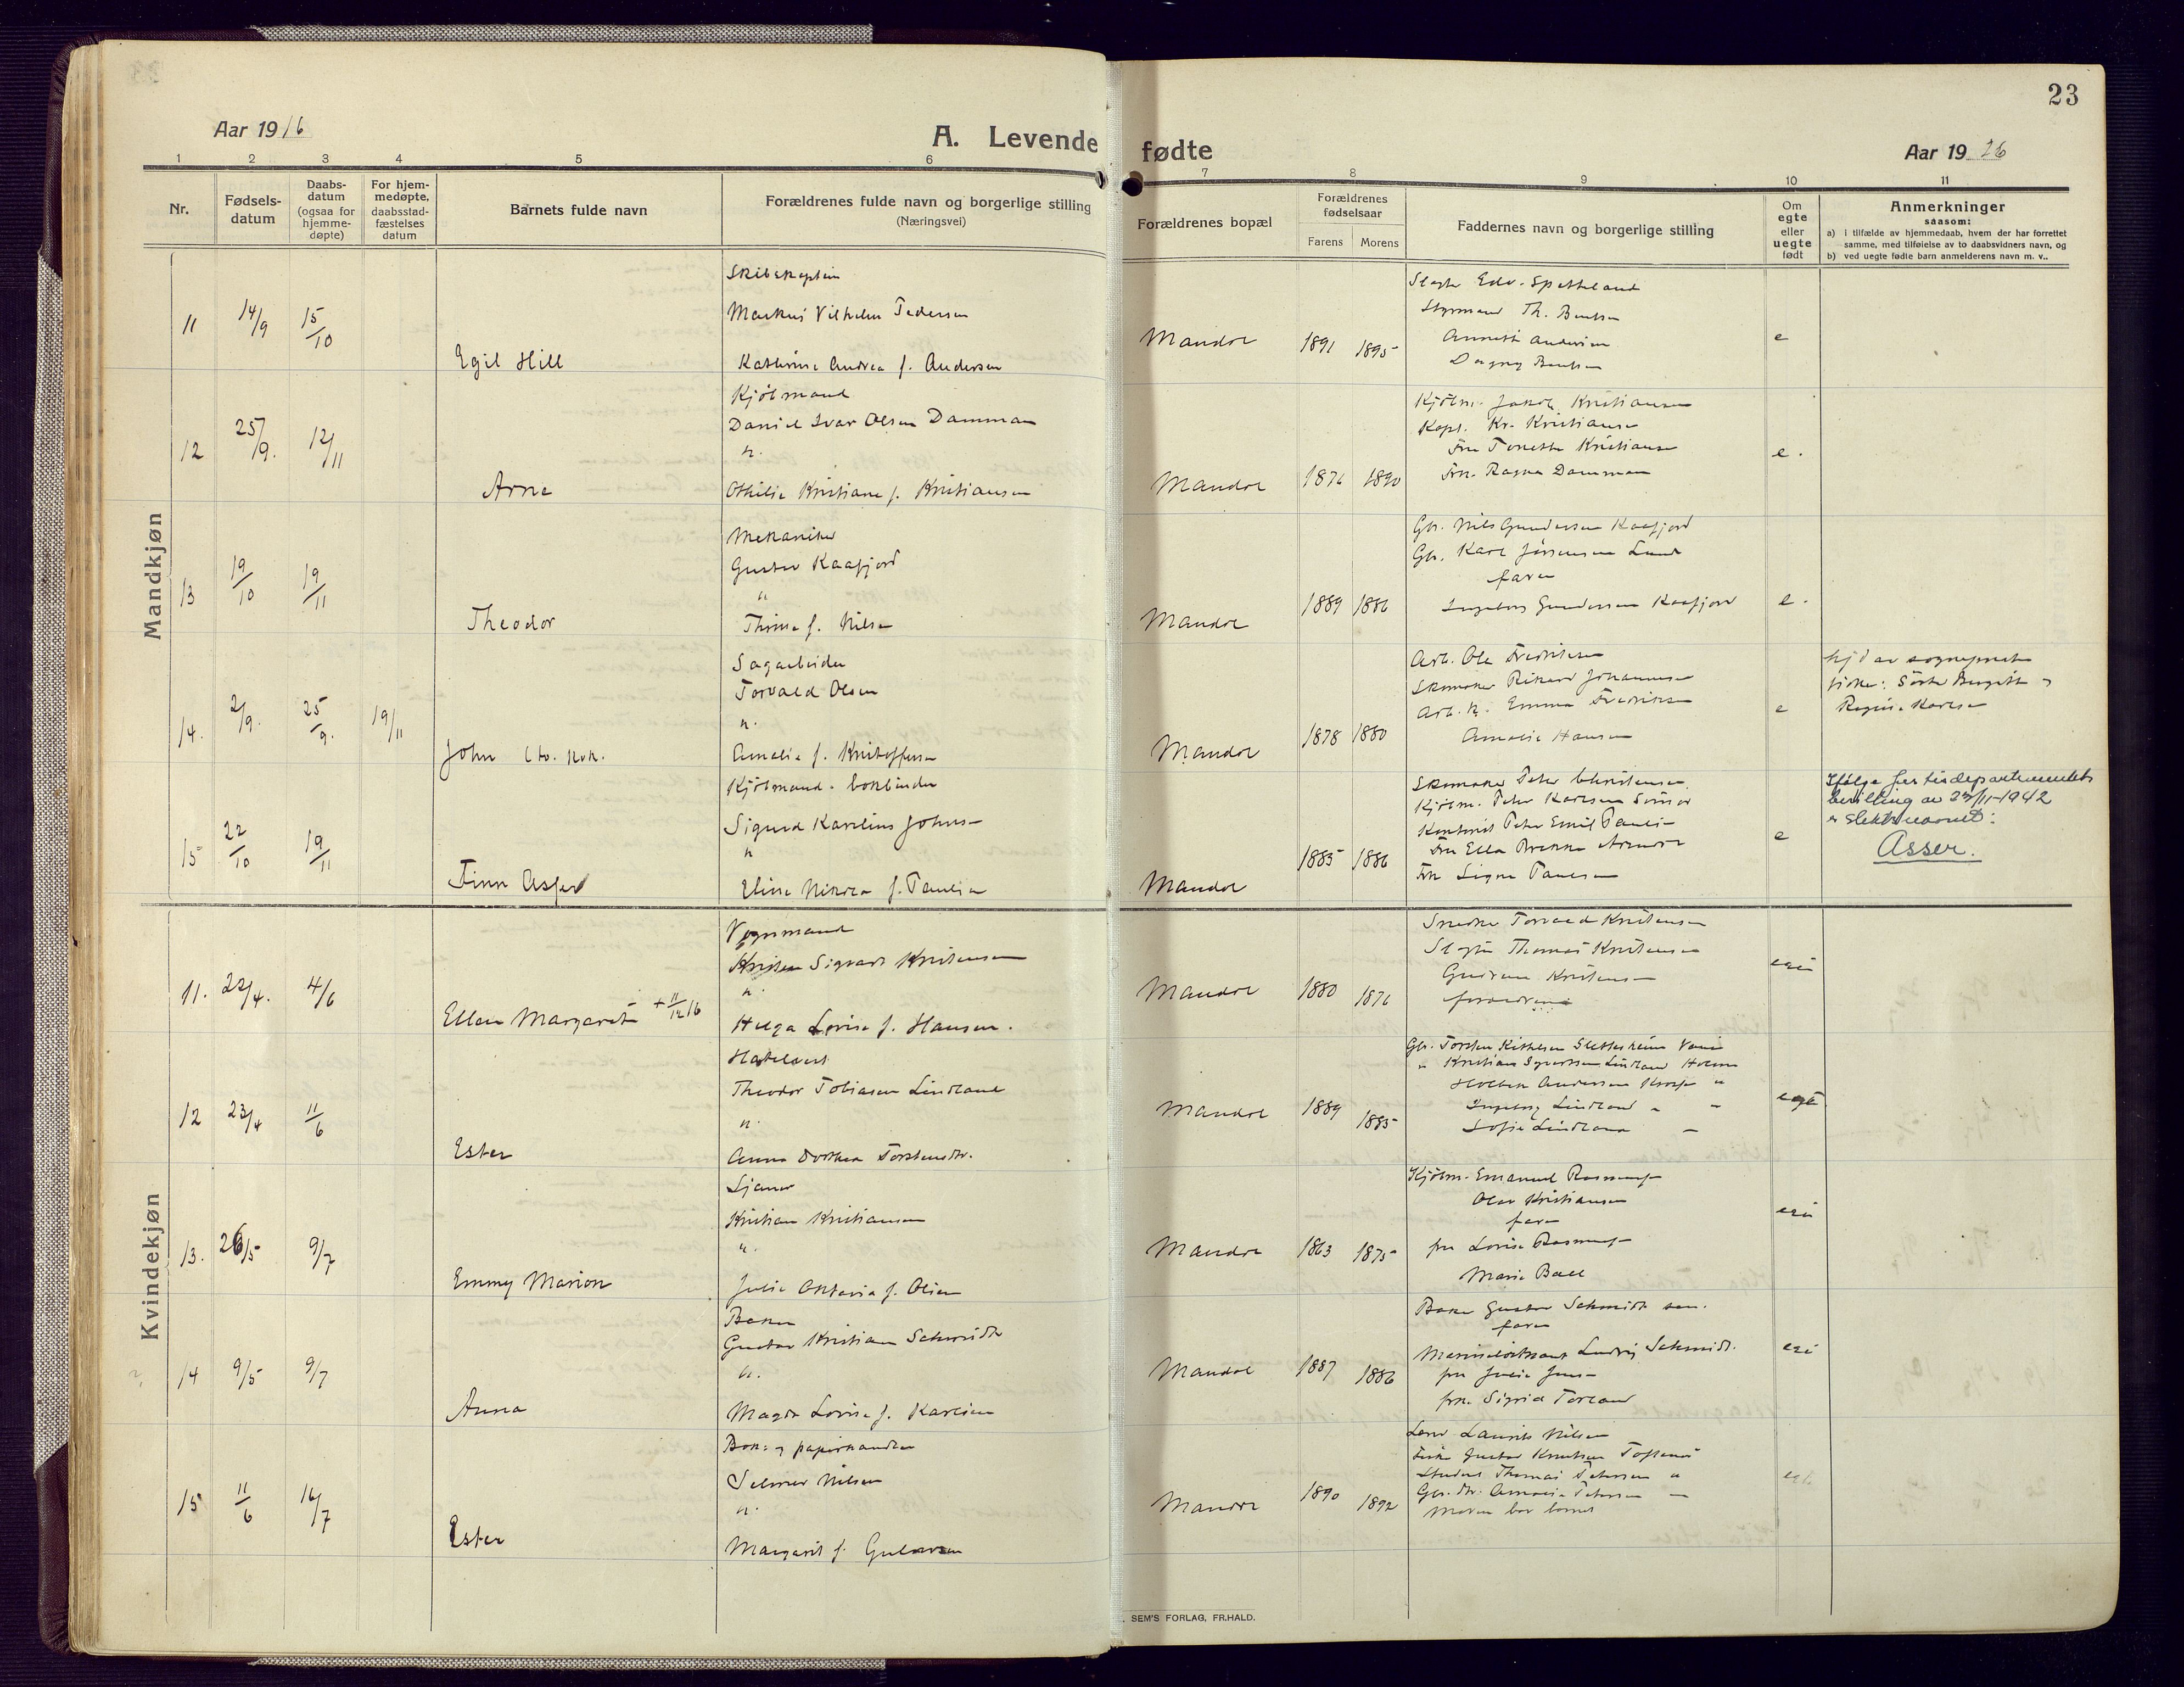 23
Aar 1916
A. Levende fødte
Aar 1926
1 2 3 4 5 6 7 8 9 10 11
Nr.
Fødsels-
datum
Daabs-
datum
(ogsaa for
hjemme-
døpte)
For hjem-
medøpte,
daabsstad-
fæstelses
datum
Barnets fulde navn
Forældrenes fulde navn og borgerlige stilling
(Næringsvei)
Forældrenes bopæl
Forældrenes
fødselsaar
Farens Morens
Faddernes navn og borgerlige stilling
Om
egte
eller
uegte
født
Anmerkninger
saasom:
a) i tilfælde av hjemmedaab, hvem der har forrettet
samme, med tilføielse av to daabsvidners navn, og
b) ved uegte fødte barn anmelderens navn m. v..
Mandkjøn
11 14/9 15/10 Egil Hill
Skibskaptein
Markus Vilhelm Pedersen
Kathrine Andrea f. Andersen
Mandal 1891 1895
Edv. Spetteland
Styrmand Th. Bentsen
Annette Andersen
Dagny Bentsen
e
12 25/9. 12/11 Arne
Kjøbmand
Daniel Ivar Olsen Damman
h.
Othilie Kristiane f. Kristiansen
Mandal 1876 1890
Kjøbm. Jakob Kristiansen
Kapt. Kr. Kristiansen
Fru Tonette Kristiansen
Frk. Ragna Damman
e.
13 19/10 19/11 Theodor
Mekaniker
Gustav Kaafjord
Thrine f. Nilsen
Mandal 1889 1886
Gbr. Nils Gundersen Kaafjord
Gbr. Karl Jørgensen Lund
faren
Ingeborg Gundersen Kaafjord
e.
14. 2/9. 25/9. 19/11 John
Sagarbeider
Torvald Olsen
h.
Amalie f. Kristoffersen
Mandal 1878 1880
Arb. Ole Fredriksen
Skomaker Rikard Johannessen
Arb. h. Emma Fredriksen
Amalie Hansen
e
hjd av sogneprest
Regine Karlsen
15 22/10 19/11 Finn Asser
Kjøbmand. bokbinder
Sigurd Karelius Johnsen
h
Elise Nikoea f. Paulsen
Mandal 1885 1886
Skomaker Peter Christensen
Kjøbm. Peter Karlsen
Kontorist Peter Emil Paulsen
Fru Ella Brekke Arendal
Frk Signe Paulsen
e
Ifølge justisdepartementets
bevilling av 23/11-1942
er slektsnavnet:
Asser.
Kvindekjøn
11. 22/4. 4/6 Ellen Margarete + 11/12 16
Vognmand
Kristen Sigvart Kristensen
h.
Helga Lovise f. Hansen.
Mandal 1880 1876
Snedker Torvald Kristensen
Thomas Kristensen
Gudrun Kristensen
forældrene
egte
12 23/4 11/6 Ester
Hotelvert
Theodor Tobiasen Lindland
h.
Anna Dorthea Torstensdtr.
Mandal 1889 1885
Gbr. Torsten Slettesheim
Kristian Lindland Holme
Andersen
Ingeborg Lindland
Sofie Lindland
egte
13. 26/5 9/7 Emmy Marion
Sjømand
Kristian Kristiansen
h.
Julie Oktavia f. Olsen
Mandal 1863 1875
Kjøbm. Emanuel Rasmussen
Olav Kristiansen
faren
fru Lovise Rasmussen
Marie Ball
egte
14 9/5 9/7 Anna
Baker
Gustav Kristian Schmidt
h.
Magda Lovise f. Karlsen
Mandal 1887 1886
Baker Gustav Schmidt sen.
faren
Ludvig Schmidt.
fru Julie
frk. Sigrid Torland
egte
15 11/6 16/7 Ester
Bok- og papirhandler
Selmer Nilsen
h.
Margaret f. Gulovsen
Mandal 1890 1892
Laurits Nilsen
Gustav Knutsen
Student Thomas Petersen
Gbr. dtr. Amalie Petersen
Moren bar barnet
egte
SEM'S FORLAG, FR.HALD.